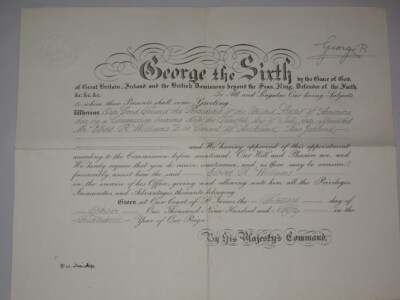 George R
George the Sixth by the Grace of God,
of Great Britain, Ireland and the British Dominions beyond the Seas, King, Defender of the Faith,
&c, &c, &c. To All and Singular Our loving Subjects
to whom these Presents shall come, Greeting.
Whereas Our Good Friend the President of the United States of America
has by a Commission bearing date the day of last, appointed
Mr. R. Williams to be Consul at Auckland, New Zealand
And We having approved of this appointment
according to the Commission before mentioned, Our Will and Pleasure are, and
We hereby require, that you do receive, countenance, and, as there may be occasion,
favourably assist him the said R. Williams
in the exercise of his Office, giving and allowing unto him all the Privileges,
Immunities and Advantages thereunto belonging.
Given at Our Court of St. James, the day of
One Thousand Nine Hundred and in the
Year of Our Reign.
By His Majesty's Command.